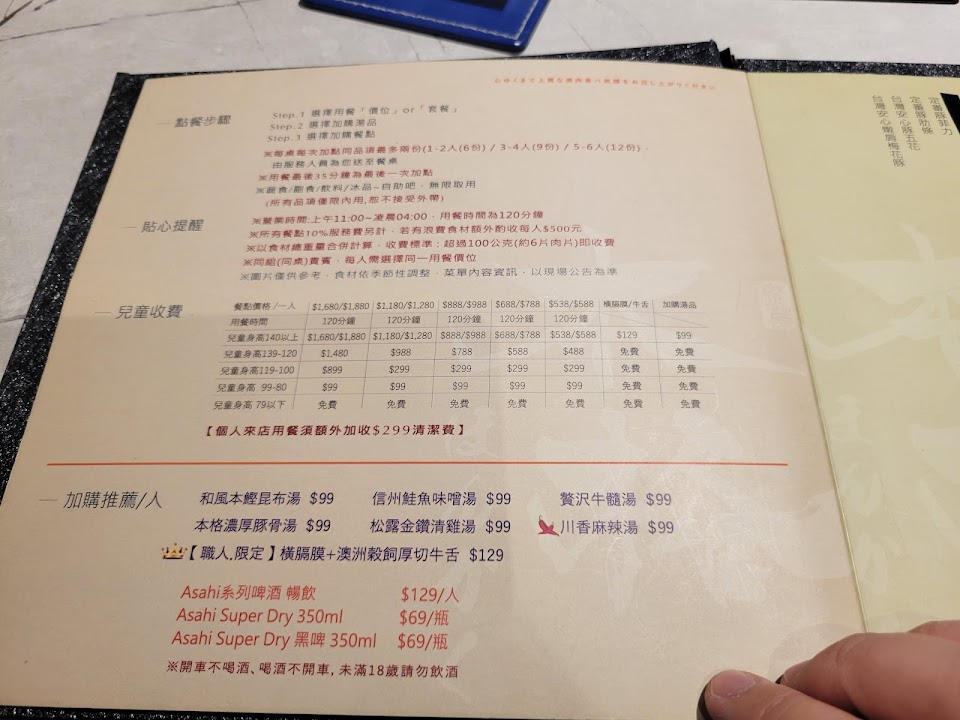 心ゆくまで上質な焼肉食べ放題をお召し上がりください
點餐步驟
Step.1 選擇用餐「價位」or「套餐」
Step.2 選擇加購湯品
Step.3 選擇加購餐點
※每桌每次加點同品項最多兩份(1-2人(6份) / 3-4人(9份) / 5-6人(12份)，
由服務人員為您送至餐桌
※用餐最後35分鐘為最後一次加點
※蔬食/副食/飲料/冰品~自助吧，無限取用
(所有品項僅限內用,恕不接受外帶)
貼心提醒
※營業時間:上午11:00~凌晨04:00，用餐時間為120分鐘
※所有餐點10%服務費另計，若有浪費食材額外酌收每人$500元
※以食材總重量合併計算，收費標準：超過100公克(約6片肉片)即收費
※同組(同桌)貴賓，每人需選擇同一用餐價位
※圖片僅供參考，食材依季節性調整，菜單內容資訊，以現場公告為準
兒童收費
餐點價格 /一人 $1,680/$1,880 $1,180/$1,280 $888/$988 $688/$788 $538/$588 橫膈膜/牛舌 加購湯品
用餐時間 120分鐘 120分鐘 120分鐘 120分鐘 120分鐘
兒童身高140以上 $1,680/$1,880 $1,180/$1,280 $888/$988 $688/$788 $538/$588 $129 $99
兒童身高139-120 $1,480 $988 $788 $588 $488 免費 免費
兒童身高119-100 $899 $299 $299 $299 $299 免費 免費
兒童身高 99-80 $99 $99 $99 $99 $99 免費 免費
兒童身高 79以下 免費 免費 免費 免費 免費 免費 免費
【個人來店用餐須額外加收$299清潔費】
加購推薦/人
和風本鰹昆布湯 $99 信州鮭魚味噌湯 $99 贅沢牛髓湯 $99
本格濃厚豚骨湯 $99 松露金鑽清雞湯 $99 川香麻辣湯 $99
【職人.限定】橫膈膜+澳洲穀飼厚切牛舌 $129
Asahi系列啤酒 暢飲 $129/人
Asahi Super Dry 350ml $69/瓶
Asahi Super Dry 黑啤 350ml $69/瓶
※開車不喝酒、喝酒不開車，未滿18歲請勿飲酒
定番豚菲力
定番豚肋條
台灣安心豚五花
台灣安心嫩肩梅花豚